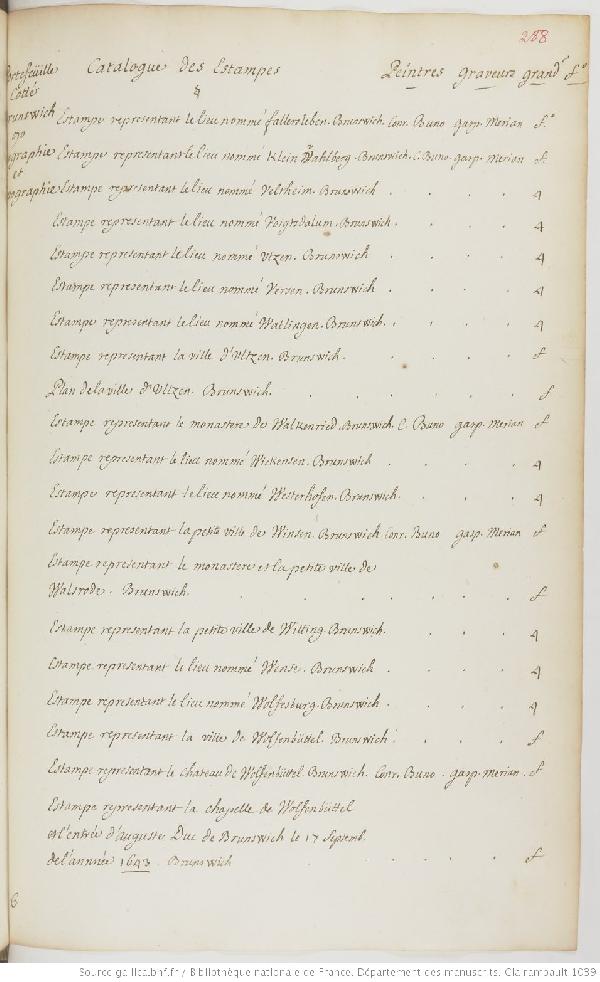 288
Catalogue des Estampes Peintres graveurs grandr fo
Portefeuille
Cottés
Brunswich
topographie
et
§
Estampe representant le lieu nommé fallersleben. Brunswich. Conr. Buno gasp. Merian fo
Estampe representant le lieu nommé Klein Wahlberg. Brunswich. C. Buno. gasp. merian f
Estampe representant le lieu nommé Veltheim. Brunswich . . . . 4
Estampe representant le lieu nommé Voigtsdalum. Brunswich . . . 4
Estampe representant le lieu nommé Vtzen. Brunswich . . . . 4
Estampe representant le lieu nommé Versen. Brunswich . . . . 4
Estampe representant le lieu nommé Watlingen. Brunswich. . . . 4
Estampe representant la ville d'Vltzen. Brunswich. . . . f
Plan de la ville d'Vltzen. Brunswich. . . . . f
Estampe representant le monastere de Walkenried. Brunswich. C. Buno gasp. Merian f
Estampe representant le lieu nommé Wickensen. Brunswich . . . . 4
Estampe representant le lieu nommé Westerhofen. Brunswich. . . . 4
Estampe representant la petite ville de Winsen. Brunswich Conr. Buno gasp. Merian f
Estampe representant le monastere et la petite ville de
Walsrode. Brunswich. . . . . . f
Estampe representant la petite ville de Witting. Brunswich. . . . 4
Estampe representant le lieu nommé Wense. Brunswich . . . . 4
Estampe representant le lieu nommé Wolfesburg. Brunswich . . . . 4
Estampe representant la ville de Wolfenbüttel. Brunswich . . . . f
Estampe representant le chateau de Wolfenbüttel Brunswich. Conr. Buno . gasp. merian . f
Estampe representant la chapelle de Wolfenbüttel
et l'entrée d'auguste Duc de Brunswich le 17 Septemb.
de l'annnée 1643. Brunswich . . . . f
6
Source gallica.bnf.fr / Bibliothèque nationale de France. Département des manuscrits. Clairambault 1039